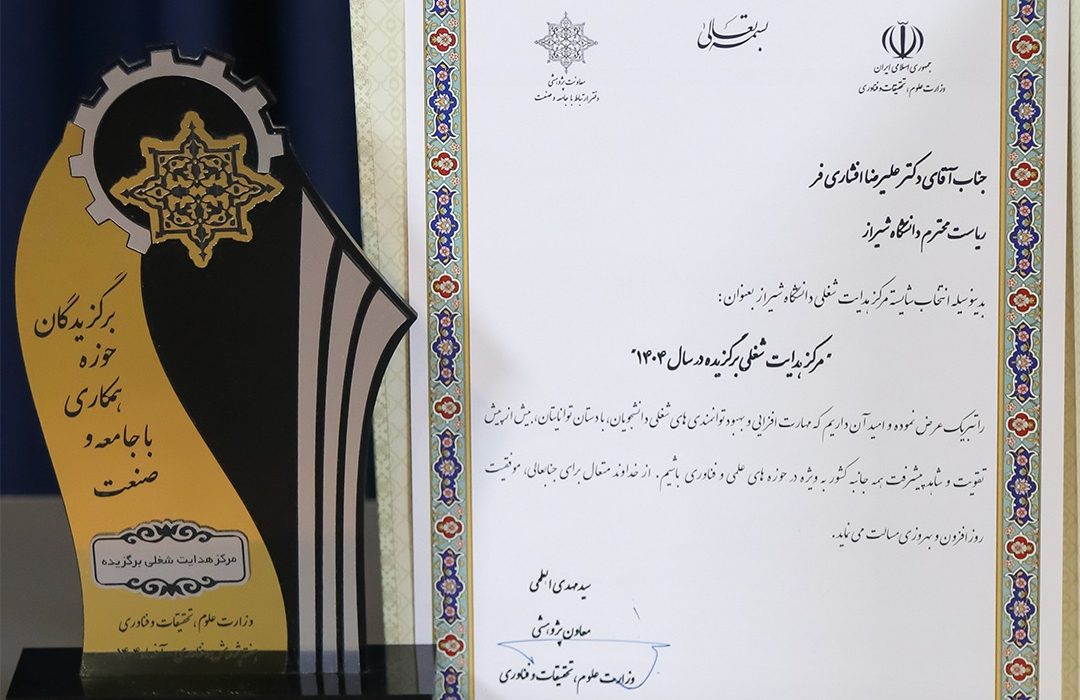 برگزیدگان
حوزه
همکاری
با جامعه و
صنعت
مرکز هدایت شغلی برگزیده
وزارت علوم، تحقیقات و فناوری
بسمه تعالی
جمهوری اسلامی ایران
وزارت علوم، تحقیقات و فناوری
معاونت پژوهشی
دفتر ارتباط با جامعه و صنعت
جناب آقای دکتر علیرضا افشاری فر
ریاست محترم دانشگاه شیراز
بدینوسیله انتخاب شایسته مرکز هدایت شغلی دانشگاه شیراز بعنوان:
"مرکز هدایت شغلی برگزیده در سال ۱۴۰۴"
را تبریک عرض نموده و امید آن داریم که مهارت افزایی و بهبود توانمندی های شغلی دانشجویان، با دستان توانایتان، بیش از پیش
تقویت و شاهد پیشرفت همه جانبه کشور به ویژه در حوزه های علمی و فناوری باشیم. از خداوند متعال برای جنابعالی، موفقیت
روز افزون و بهروزی مسالت می نماید.
سید مهدی ابطحی
معاون پژوهشی
وزارت علوم، تحقیقات و فناوری